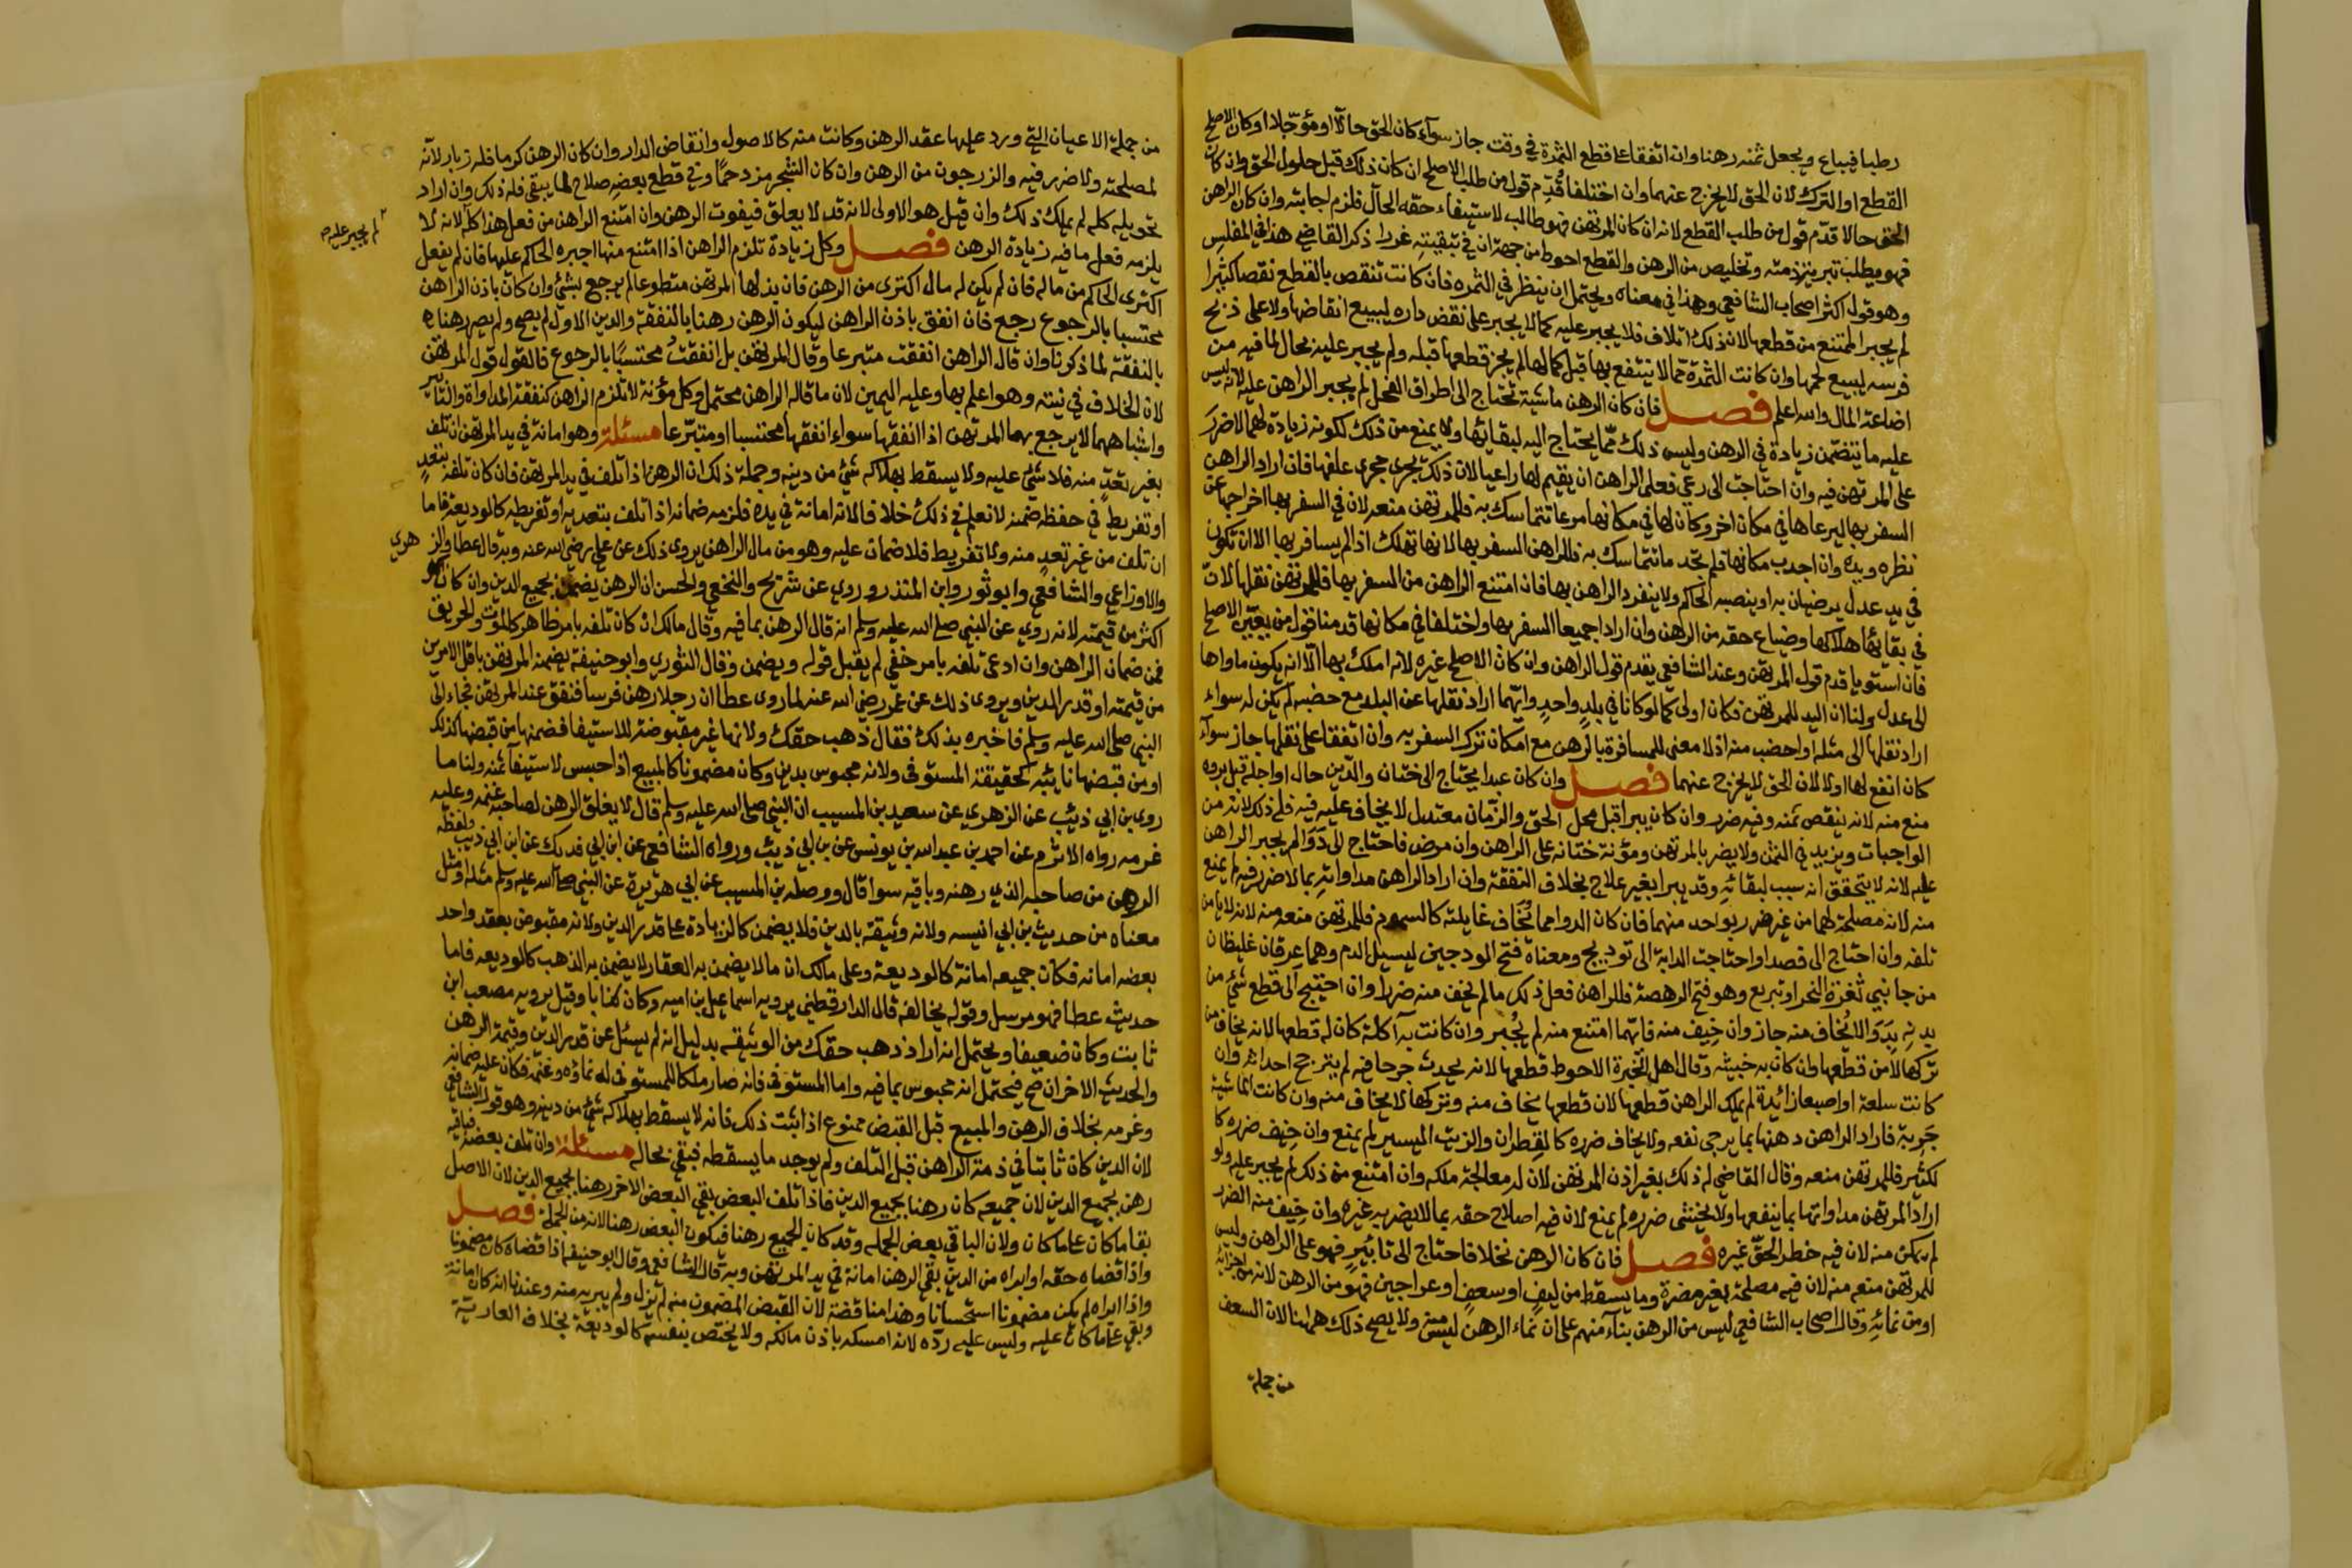 رطبا فيباع ويجعل ثمنه رهنا وان اتفقا على قطع الثمرة في وقت جاز سوآء كان الحق حالاً او مؤجلا او كان الاصلح
القطع او الترك لان الحق لا يخرج عنهما وان اختلفا قُدّم قول من طلب الاصلح ان كان ذلك قبل حلول الحق وان كان
الحق حالا قدّم قول من طلب القطع لانه ان كان المرتهن فهو طالب لاستيفاء حقه الحآل فلزم اجابته وان كان الراهن
فهو يطلب تبرئة ذمته وتخليص من الرهن والقطع احوط من جهة ان في تبقيته غررا ذكر القاضي هذا في المفلس
وهو قول اكثر اصحاب الشافعي وهذا في معناه ويحتمل ان ينظر في الثمره فان كانت تنقص بالقطع نقصا كثيرا
لم يجبر الممتنع من قطعها لان ذلك اتلاف فلا يجبر عليه كما لا يجبر على نقض داره ليبيع انقاضها ولا على ذبح
فرسه ليبيع لحمها وان كانت الثمرة ممّا لا ينتفع بها قبل كمالها لم يجز قطعها قبله ولم يجبر عليه بحال لما فيه من
اضاعة المال والله اعلم فصل فان كان الرهن ماشية تحتاج الى اطراق الفحل لم يجبر الراهن عليه لانه ليس
عليه ما يتضمن زيادة في الرهن وليس ذلك ممّا يحتاج اليه لبقائها ولا يمنع من ذلك لكونه زيادة لهما لا ضرر
على المرتهن فيه وان احتاجت الى رعي فعلى الراهن ان يقيم لها راعيا لان ذلك يجري مجرى علفها فان اراد الراهن
السفر بها ليرعاها في مكان اخر وكان لها في مكانها مرعا تتماسك به فللمرتهن منعه لان في السفر بها اخراجها عن
نظره ويده وان اجدب مكانها فلم تجد ما تتماسك به فللراهن السفر بها لانها تهلك اذا لم يسافر بها الا ان تكون
في يد عدل يرضيان به او ينصبه الحاكم ولا ينفرد الراهن بها فان امتنع الراهن من السفر بها فللمرتهن نقلها لان
في بقائها هلاكها وضياع حقه من الرهن وان ارادا جميعا السفر بها واختلفا في مكانها قدمنا قول من يعيّن الاصلح
فان استويا قدم قول المرتهن وعند الشافعي يقدم قول الراهن وان كان الاصلح غيره لانه املك بها الّا انه يكون ماواها
الى عدل ولنا ان اليد للمرتهن فكان اولى كما لو كانا في بلد واحد وايّهما اراد نقلها عن البلد مع خصبه لم يكن له سواء
اراد نقلها الى مثله او اخصب منه اذ لا معنى للمسافرة بالرهن مع امكان ترك السفر به وان اتفقا على نقلها جاز سوآء
كان انفع لها او لا لان الحق لا يخرج عنهما فصل وان كان عبدا يحتاج الى ختان والدّين حال او اجله قبل بروه
منع منه لانه ينقص ثمنه وفيه ضرر وان كان يبرا قبل محل الحق والزمان معتدل لا يخاف عليه فيه فله ذلك لانه من
الواجبات ويزيد في الثمن ولا يضر بالمرتهن ومؤنة ختانه على الراهن وان مرض فاحتاج الى دَوَا لم يجبر الراهن
عليه لانه لا يتحقق انه سبب لبقائه وقد يبرا بغير علاج بخلاف النفقة وان اراد الراهن مداواته بما لا ضرر فيه لم يمنع
منه لانه مصلحة لهما من غير ضرر بواحد منهما فان كان الدوا مما يُخاف غايلته كالسموم فللمرتهن منعه منه لانه لا يامن
تلفه وان احتاج الى فصد او احتاجت الدابة الى توديج ومعناه فتح الودجين ليسيل الدم وهما عِرقان غليظان
من جانبي ثغرة النحر او تبريع وهو فتح الرهصة فللراهن فعل ذلك ما لم يخف منه ضررا وان احتيج الى قطع شئ من
بدنه بدَوَا لا يُخاف منه جاز وان خِيف منه فايّهما امتنع منه لم يُجبر وان كانت به آكلة كان له قطعها لانه يخاف من
تركها لا من قطعها وان كان به خبيثه وقال اهل الخبرة الاحوط قطعها لانه يحدث جرحا فيه لم يترجح احداثه وان
كانت سلعة او اصبعا زائدة لم يملك الراهن قطعها لان قطعها يخاف منه وتركها لا يخاف منه وان كانت الماشية
جَرِبة فاراد الراهن دهنها بما يرجى نفعه ولا يخاف ضرره كالقطران والزيت اليسير لم يمنع وان خيف ضرره كا
لكثير فللمرتهن منعه وقال القاضي له ذلك بغير اذن المرتهن لان له معالجة ملكه وان امتنع من ذلك لم يجبر عليه ولو
اراد المرتهن مداواتها بما ينفعها ولا يخشى ضرره لم يمنع لان فيه اصلاح حقه بما لا يضر به غيره وان خيف منه الضرر
لم يمكن منه لان فيه خطر الحقّ غيره فصل فان كان الرهن نخلا فاحتاج الى تابيرٍ فهو على الراهن وليس
للمرتهن منعه منه لان فيه مصلحة بغير مضرة وما يسقط من ليف او سعف او عراجين فهو من الرهن لانه من اجزائه
او من نمائه وقال اصحاب الشافعي ليس من الرهن بناء منهم على ان نماء الرهن ليس منه ولا يصح ذلك ههنا لان السعف
من جملة
من جملة الاعيان التي ورد عليها عقد الرهن وكانت منه كالاصول وانقاض الدار وان كان الرهن كرما فله زباره لانه
لمصلحته ولا ضرر فيه والزرجون من الرهن وان كان الشجر مزدحمًا وفي قطع بعضه صلاح لما يبقى فله ذلك وان اراد
تحويله كله لم يملك ذلك وان قيل هو الاولى لانه قد لا يعلق فيفوت الرهن وان امتنع الراهن من فعل هذا كله لانه لا
لم يجبر عليه صح
يلزمه فعل ما فيه زيادة الرهن فصل وكل زيادة تلزم الراهن اذا امتنع منها اجبره الحاكم عليها فان لم يفعل
اكترى الحاكم من ماله فان لم يكن له مال اكترى من الرهن فان بذلها المرتهن متطوعا لم يرجع بشئ وان كان باذن الراهن
محتسبا بالرجوع رجع فان انفق باذن الراهن ليكون الرهن رهنا بالنفقة والدين الاول لم يصح ولم يصر رهناه
بالنفقة لما ذكرنا وان قال الراهن انفقت متبرعا وقال المرتهن بل انفقتُ محتسبًا بالرجوع فالقول قول المرتهن
لان الخلاف في نيته وهو اعلم بها وعليه اليمين لان ما قاله الراهن محتمل وكل مؤنة لا تلزم الراهن كنفقة المداواة والتابير
واشباههما لا يرجع بها المرتهن اذا انفقها سواء انفقها محتسبا او متبرّعا مسئلة وهو امانة في يد المرتهن ان تلف
بغير تعدّ منه فلا شئ عليه ولا يسقط بهلاكه شئ من دينه وجملة ذلك ان الرهن اذا تلف في يد المرتهن فان كان تلفه بتعدٍ
او تفريط في حفظه ضمنه لا نعلم في ذلك خلافا لانه امانة في يده فلزمه ضمانه اذا تلف بتعديه او تفريطه كالوديعة فاما
ان تلف من غير تعد منه ولا تفريط فلا ضمان عليه وهو من مال الراهن يروى ذلك عن علي رضي الله عنه وبه قال عطا والزهري
والاوزاعي والشافعي وابو ثور وابن المنذر وروي عن شريح والنخعي والحسن ان الرهن يضمن بجميع الدين وان كان
اكثر من قيمته لانه روي عن النبي صلى الله عليه وسلم انه قال الرهن بما فيه وقال مالك ان كان تلفه بامر ظاهر كالموت والحريق
فمن ضمان الراهن وان ادعى تلفه بامر خفي لم يقبل قوله ويضمن وقال الثوري وابو حنيفة يضمنه المرتهن باقل الامرين
من قيمته او قدر الدين ويروى ذلك عن عمر رضي الله عنه لما روى عطا ان رجلا رهن فرسا فنفق عند المرتهن فجاء الى
النبي صلى الله عليه وسلم فاخبره بذلك فقال ذهب حقك ولانها غير مقبوضة للاستيفا فضمنها من قبضها كذلك
او من قبضها نايبه كحقيقة المستوفى ولانه محبوس بدين وكان مضمونا كالمبيع اذا حبس لاستيفآء ثمنه ولنا ما
روى بن ابي ذئب عن الزهري عن سعيد بن المسيب ان النبي صلى الله عليه وسلم قال لا يغلق الرهن لصاحبه غنمه وعليه
غرمه رواه الاثرم عن احمد بن عبد الله بن يونس عن بن ابي ذئب ورواه الشافعي عن ابن ابي فديك عن ابن ابي ذيب ولفظه
الرهن من صاحبه الذي رهنه وباقيه سوا قال ووصله بن المسيب عن ابي هريرة عن النبي صلى الله عليه وسلم مثله او مثل
معناه من حديث بن ابي انيسه ولانه وثيقة بالدين فلا يضمن كالزيادة على قدر الدين ولانه مقبوض بعقد واحد
بعضه امانه فكان جميعه امانة كالوديعة وعلى مالك ان ما لا يضمن به العقار لا يضمن به الذهب كالوديعه فاما
حديث عطا فهو مرسل وقوله يخالفه قال الدارقطني يرويه اسماعيل بن اميه وكان كذابا وقيل يرويه مصعب ابن
ثابت وكان ضعيفا ويحتمل انه اراد ذهب حقك من الوثيقه بدليل انه لم يسئل عن قدر الدين وقيمة الرهن
والحديث الاخر ان صح فيحتمل انه محبوس بما فيه واما المستوفى فانه صار ملكا للمستوفى له نماؤه وغنمه فكان عليه ضمانه
وغرمه بخلاف الرهن والمبيع قبل القبض ممنوع اذا ثبت ذلك فانه لا يسقط بهلاكه شئ من دينه وهو قول الشافعي
لان الدين كان ثابتا في ذمة الراهن قبل التلف ولم يوجد ما يسقطه فبقي بحاله مسئلة وان تلف بعضه فباقيه
رهن بجميع الدين لان جميعه كان رهنا بجميع الدين فاذا تلف البعض بقي البعض الاخر رهنا بجميع الدين لان الاصل
بقا ما كان على ما كان ولان الباقي بعض الجمله وقد كان الجميع رهنا فيكون البعض رهنا لانه من الجملة فصل
واذا قضاه حقه او ابراه من الدين بقي الرهن امانة في يد المرتهن وبه قال الشافعي وقال ابو حنيفة اذا قضاه كان مضمونا
واذا ابراه لم يكن مضمونا استحسانا وهذا مناقضة لان القبض المضمون منه لم يزل ولم يبريه منه وعندنا انه كان امانة
وبقي على ما كان عليه وليس عليه ردّه لانه امسكه باذن مالكه ولا يختص بنفسه كالوديعة بخلاف العارية